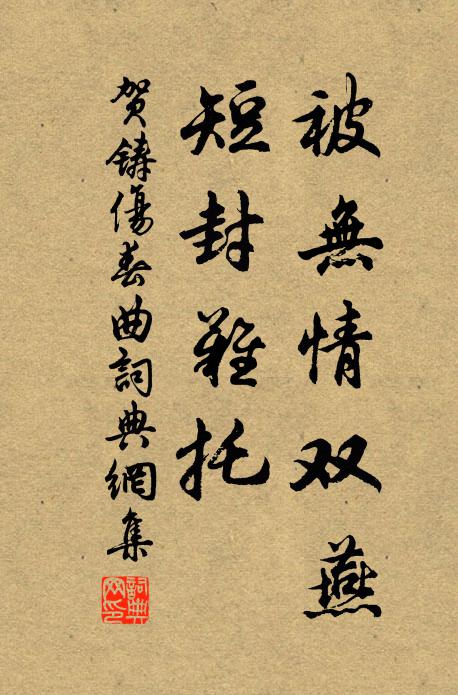 被無情双燕
短封難托
贺鑄傷春曲詞典網集
詞典网印